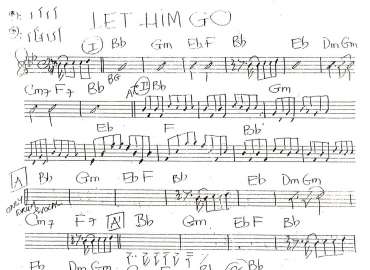 LET HIM GO
I Bb Gm Eb F Bb Eb Dm Gm
Cm7 F7 Bb I Gm
Eb F Bb
A Bb Gm Eb F Bb Eb Dm Gm
ONLY DRUM & VOCAL
Cm7 F7 A' Bb Gm Eb F Bb
Eb Dm Gm Bb